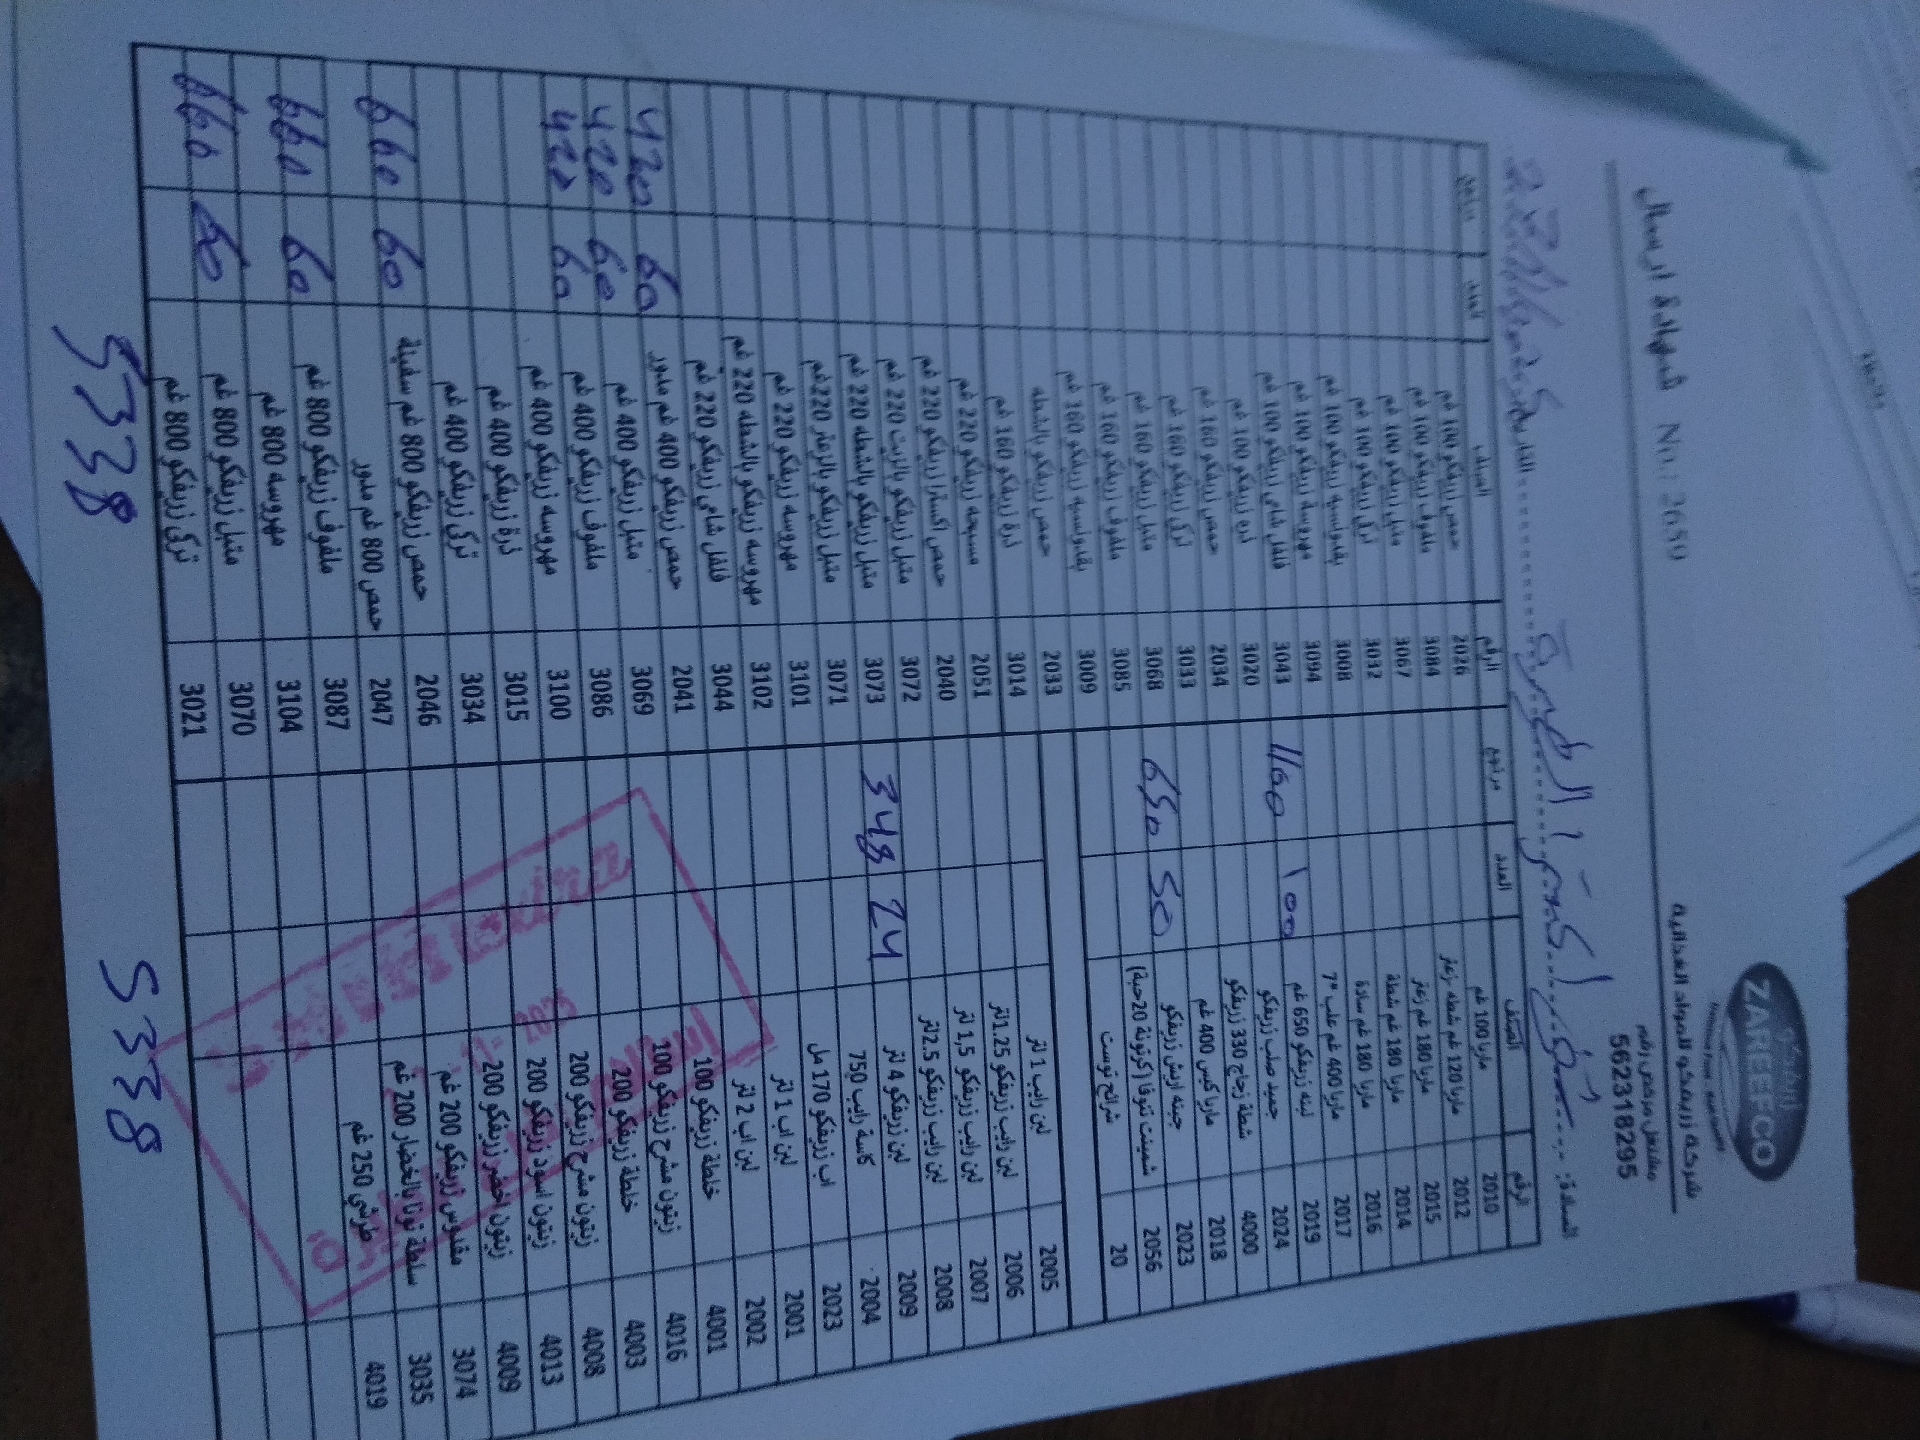 زريفكو
ZAREEFCO
شركة زريفكو للمواد الغذائية
مشتغل مرخص رقم
562318295
شهادة ارسال No.: 2650
السادة:
التاريخ
الرقم الصنف العدد مرتجع
2010 مارتا 100 غم
2012 مارتا 120 غم شطة زعتر
2015 مارتا 180 غم زعتر
2014 مارتا 180 غم شطة
2016 مارتا 180 غم سادة
2017 مارتا 400 غم علب *7
2019 لبنه زريفكو 650 غم 100 1160
2024 جميد صلب زريفكو
4000 شطة زجاج 330 زريفكو
2018 مارتا كيس 400 غم
2023 جبنه اريش زريفكو
2056 شمينت تنوفا (كرتونة 20حبة) 50 650
20 شرائح توست
2005 لبن رايب 1 لتر
2006 لبن رايب زريفكو 1.25لتر
2007 لبن رايب زريفكو 1,5 لتر
2008 لبن رايب زريفكو 2.5لتر
2009 لبن زريفكو 4 لتر 24 348
2004 كاسة رايب 750
2023 اب زريفكو 170 مل
2001 لبن اب 1 لتر
2002 لبن اب 2 لتر
4001 خلطة زريفكو 100
4016 زيتون مشرح زريفكو 100
4003 خلطة زريفكو 200
4008 زيتون مشرح زريفكو 200
4013 زيتون اسود زريفكو 200
4009 زيتون اخضر زريفكو 200
3074 مقدوس زريفكو 200 غم
3035 سلطة تونا بالخضار 200 غم
4019 طرشي 250 غم
5338
الرقم الصنف العدد مرتجع
2026 حمص زريفكو 100 غم
3084 ملفوف زريفكو 100 غم
3067 متبل زريفكو 100 غم
3032 تركي زريفكو 100 غم
3008 بقدونسيه زريفكو 100 غم
3094 مهروسة زريفكو 100 غم
3043 فلفل شامي زريفكو 100 غم
3020 ذرة زريفكو 100 غم
2034 حمص زريفكو 160 غم
3033 تركي زريفكو 160 غم
3068 متبل زريفكو 160 غم
3085 ملفوف زريفكو 160 غم
3009 بقدونسيه زريفكو 160 غم
2033 حمص زريفكو بالشطه
3014 ذرة زريفكو 160 غم
2051 مسبحه زريفكو 220 غم
2040 حمص اكسترا زريفكو 220 غم
3072 متبل زريفكو بالزيت 220 غم
3073 متبل زريفكو بالشطه 220 غم
3071 متبل زريفكو بالزعتر 220غم
3101 مهروسه زريفكو 220 غم
3102 مهروسه زريفكو بالشطه 220 غم
3044 فلفل شامي زريفكو 220 غم
2041 حمص زريفكو 400 غم مدور 60 420
3069 متبل زريفكو 400 غم 60 420
3086 ملفوف زريفكو 400 غم 60 420
3100 مهروسه زريفكو 400 غم
3015 ذرة زريفكو 400 غم
3034 تركي زريفكو 400 غم
2046 حمص زريفكو 800 غم سفينة 60 660
2047 حمص 800 غم مدور
3087 ملفوف زريفكو 800 غم 60 660
3104 مهروسه 800 غم
3070 متبل زريفكو 800 غم 60 660
3021 تركي زريفكو 800 غم
5338